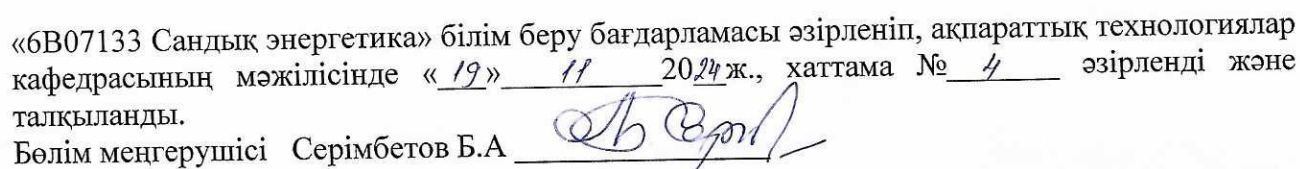 «6В07133 Сандық энергетика» білім беру бағдарламасы әзірленіп, ақпараттық технологиялар
кафедрасының мәжілісінде « 19 » 11 2024 ж., хаттама № 4 әзірленді және
талқыланды.
Бөлім меңгерушісі Серімбетов Б.А